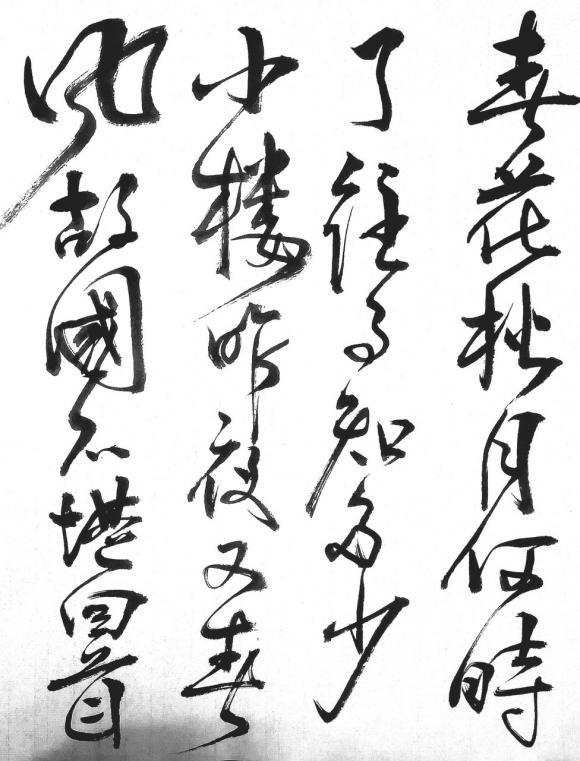 春花秋月何時
了往事知多少
小樓昨夜又春
風故國不堪回首